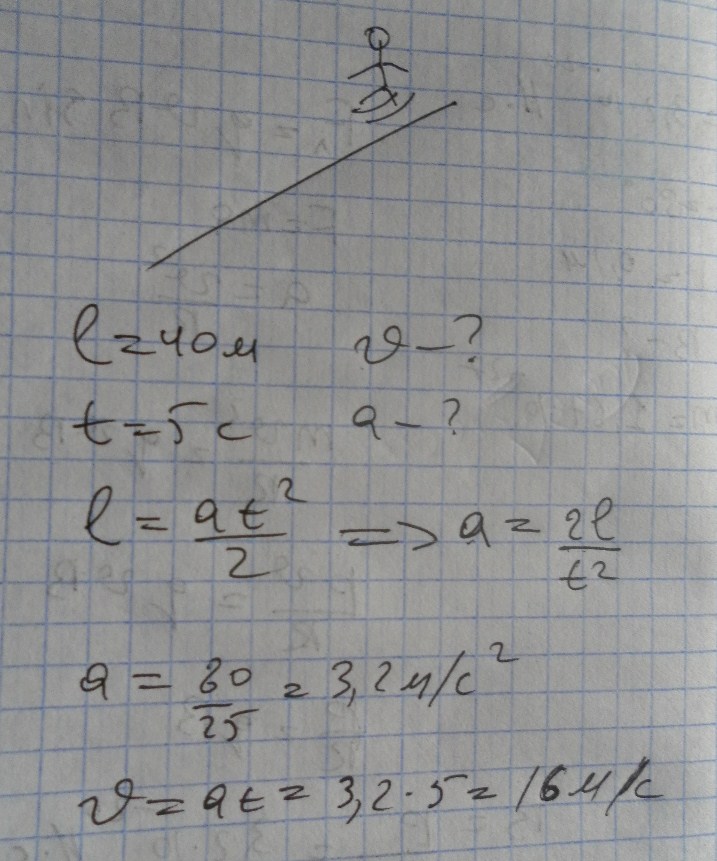 l = 40 м    υ – ?
t = 5 с    a – ?
l = at²/2 => a = 2l/t²
a = 80/25 = 3,2 м/с²
υ = at = 3,2 · 5 = 16 м/с